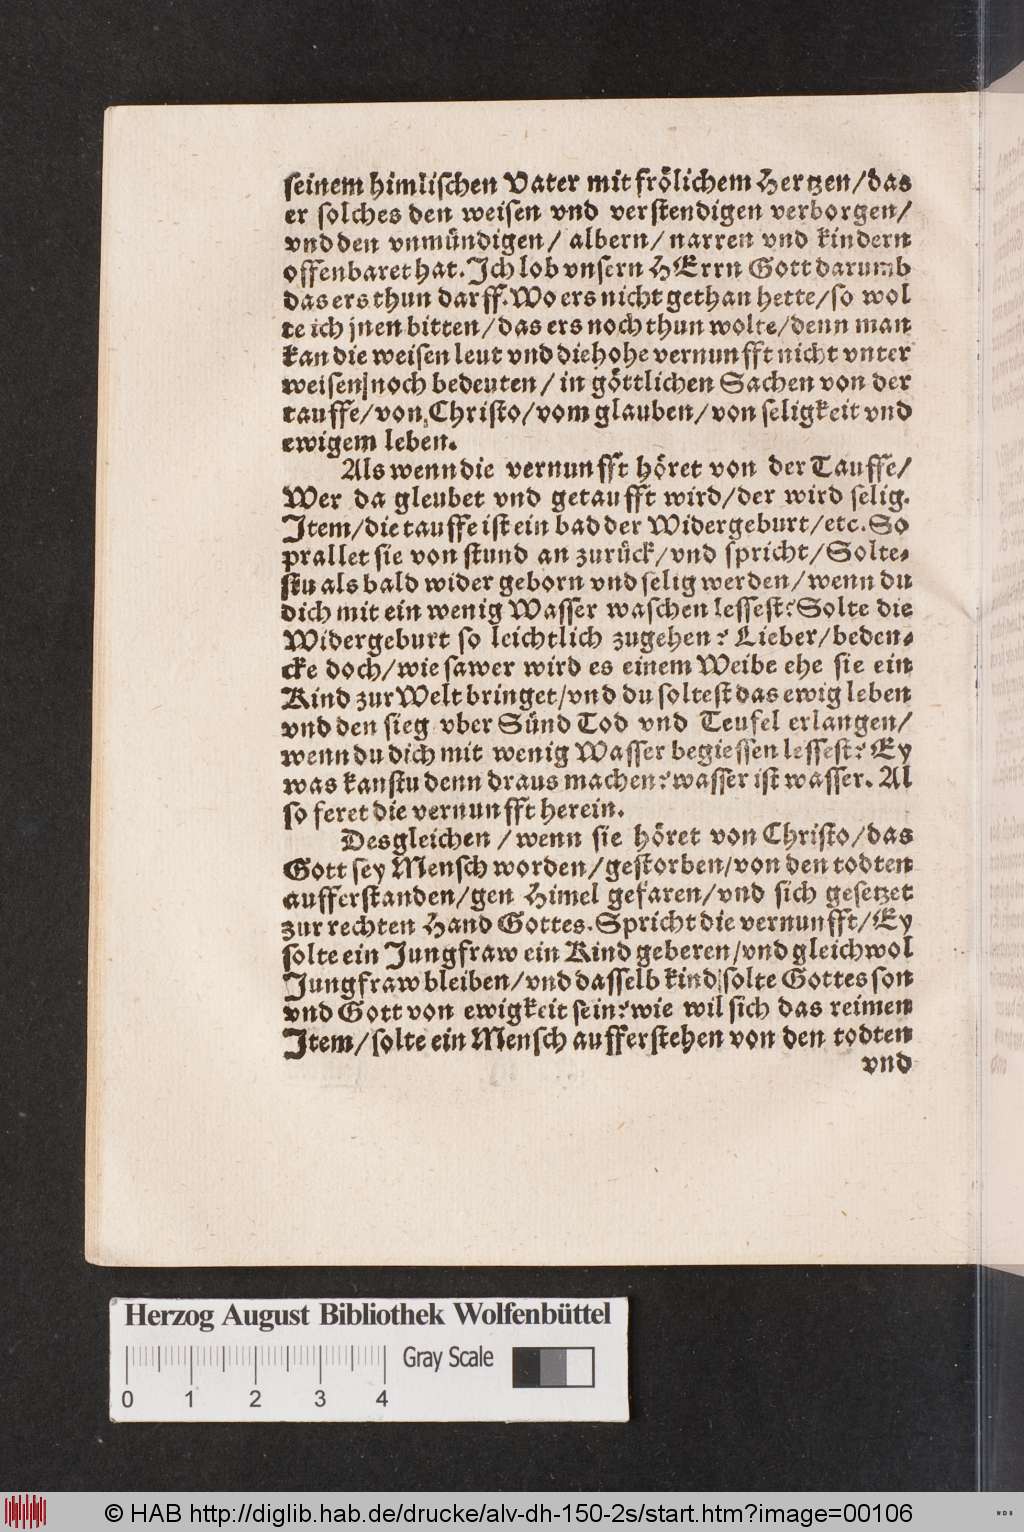 seinem himlischen Vater mit frölichem Hertzen/das
er solches den weisen vnd verstendigen verborgen/
vnd den vnmündigen/ albern/ narren vnd kindern
offenbaret hat. Ich lob vnsern HErrn Gott darumb
das ers thun darff. Wo ers nicht gethan hette/so wol
te ich jnen bitten/das ers noch thun wolte/denn man
kan die weisen leut vnd die hohe vernunfft nicht vnter
weisen noch bedeuten/ in göttlichen Sachen von der
tauffe/von Christo/vom glauben/von seligkeit vnd
ewigem leben.
Als wenn die vernunfft höret von der Tauffe/
Wer da gleubet vnd getaufft wird/der wird selig.
Item/die tauffe ist ein bad der Widergeburt/etc. So
prallet sie von stund an zurück/vnd spricht/Solte-
stu als bald wider geborn vnd selig werden/wenn du
dich mit ein wenig Wasser waschen lessest? Solte die
Widergeburt so leichtlich zugehen? Lieber/beden-
cke doch/wie sawer wird es einem Weibe ehe sie ein
Kind zur Welt bringet/vnd du soltest das ewig leben
vnd den sieg vber Sünd Tod vnd Teufel erlangen/
wenn du dich mit wenig Wasser begiessen lessest? Ey
was kanstu denn draus machen? wasser ist wasser. Al
so feret die vernunfft herein.
Desgleichen /wenn sie höret von Christo/das
Gott sey Mensch worden/gestorben/von den todten
aufferstanden/gen Himel gefaren/vnd sich gesetzet
zur rechten Hand Gottes. Spricht die vernunfft/Ey
solte ein Jungfraw ein Kind geberen/vnd gleichwol
Jungfraw bleiben/vnd dasselb kind solte Gottes son
vnd Gott von ewigkeit sein? wie wil sich das reimen
Item/solte ein Mensch aufferstehen von den todten
vnd
Herzog August Bibliothek Wolfenbüttel
Gray Scale
0 1 2 3 4
© HAB http://diglib.hab.de/drucke/alv-dh-150-2s/start.htm?image=00106